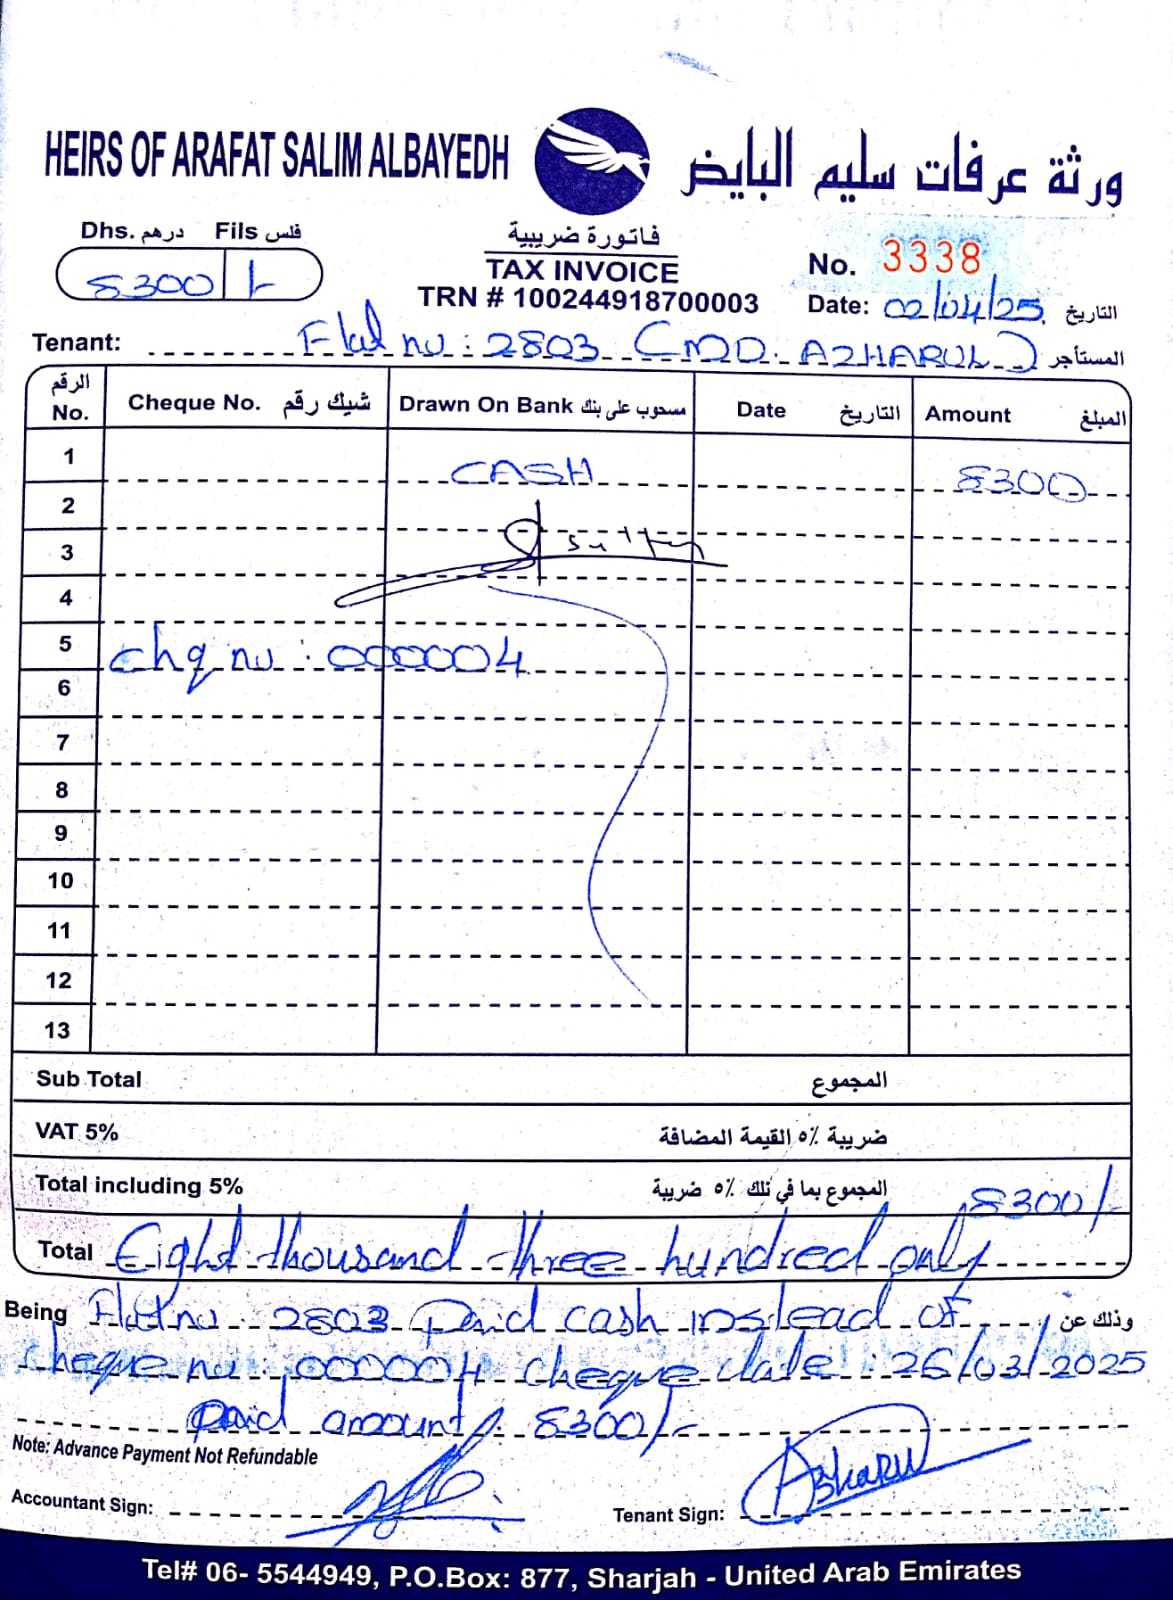 HEIRS OF ARAFAT SALIM ALBAYEDH ورثة عرفات سليم البايض
Dhs. درهم Fils فلس
8300 /-
فاتورة ضريبية
TAX INVOICE
TRN # 100244918700003
No. 3338
Date: 02/04/25 التاريخ
Tenant: Flat no : 2803 (MD. AZHARUL) المستأجر
الرقم No. Cheque No. شيك رقم Drawn On Bank مسحوب على بنك Date التاريخ Amount المبلغ
1 CASH 8300
2
3
4
5 chq no : 000004
6
7
8
9
10
11
12
13
Sub Total المجموع
VAT 5% ضريبة ٥٪ القيمة المضافة
Total including 5% المجموع بما في ذلك ٥٪ ضريبة 8300/-
Total Eight thousand three hundred only
Being Flat no : 2803 paid cash instead of وذلك عن
cheque no : 000004 cheque date : 26/03/2025
paid amount : 8300/-
Note: Advance Payment Not Refundable
Accountant Sign: Tenant Sign: Azharul
Tel# 06- 5544949, P.O.Box: 877, Sharjah - United Arab Emirates